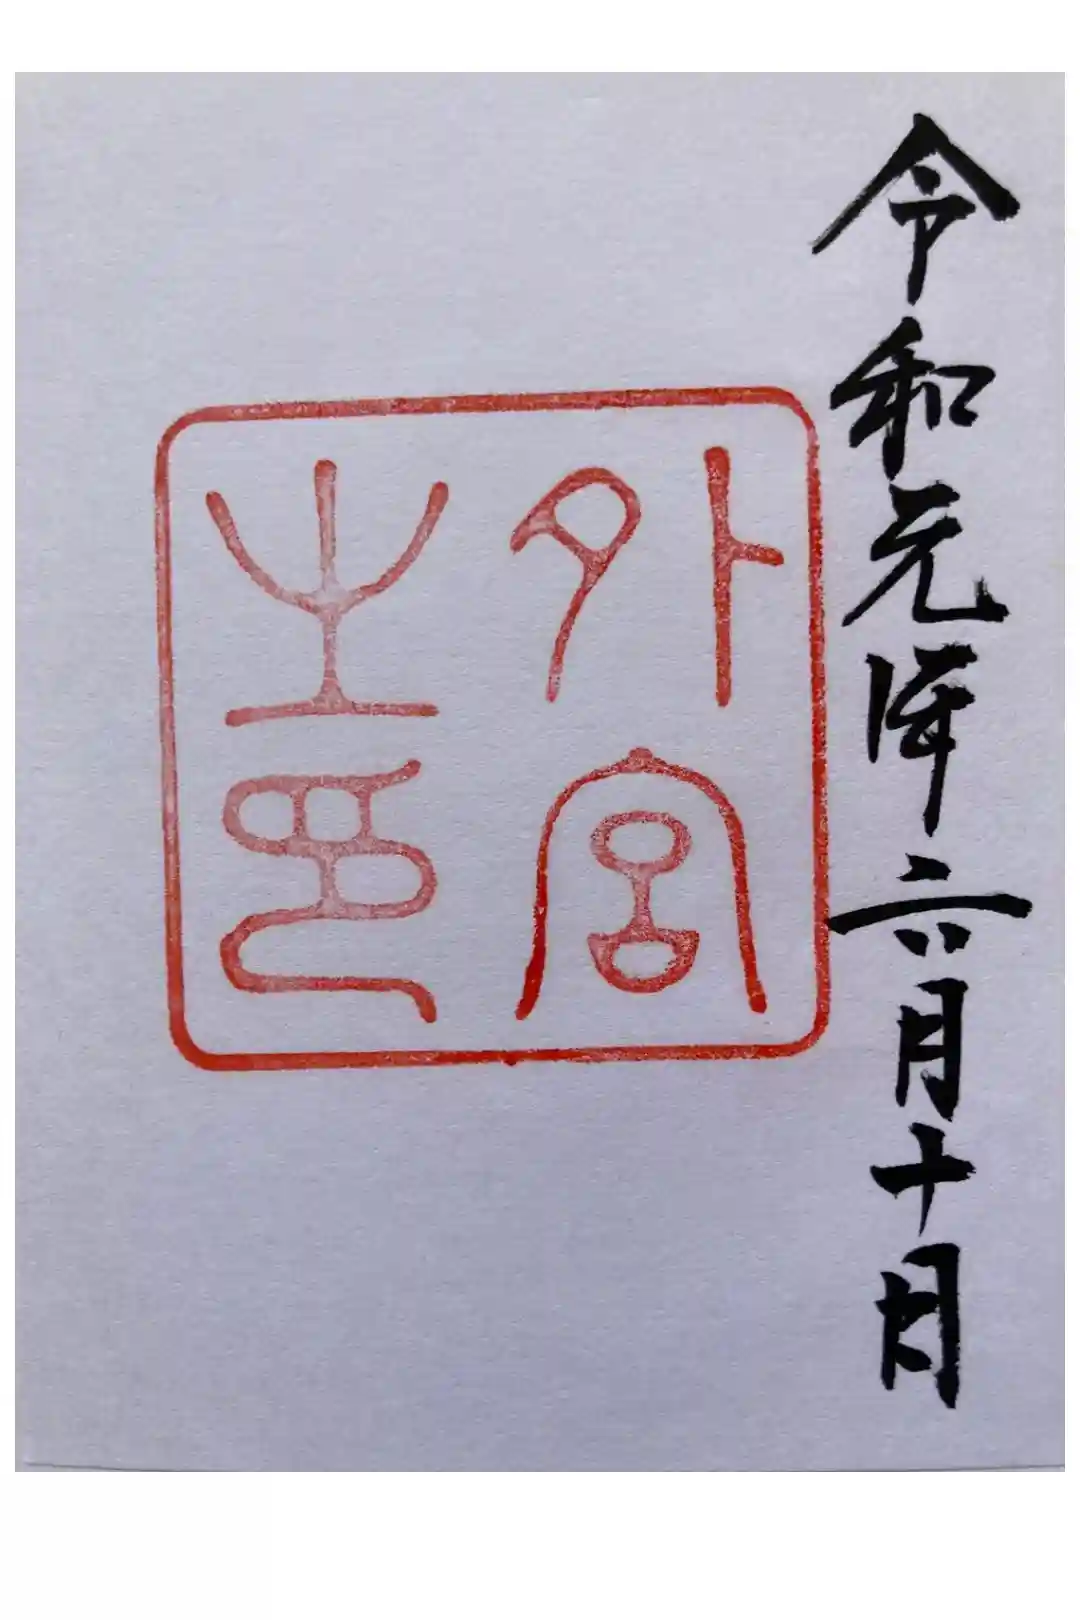 令和元年六月十日
外宮
之印